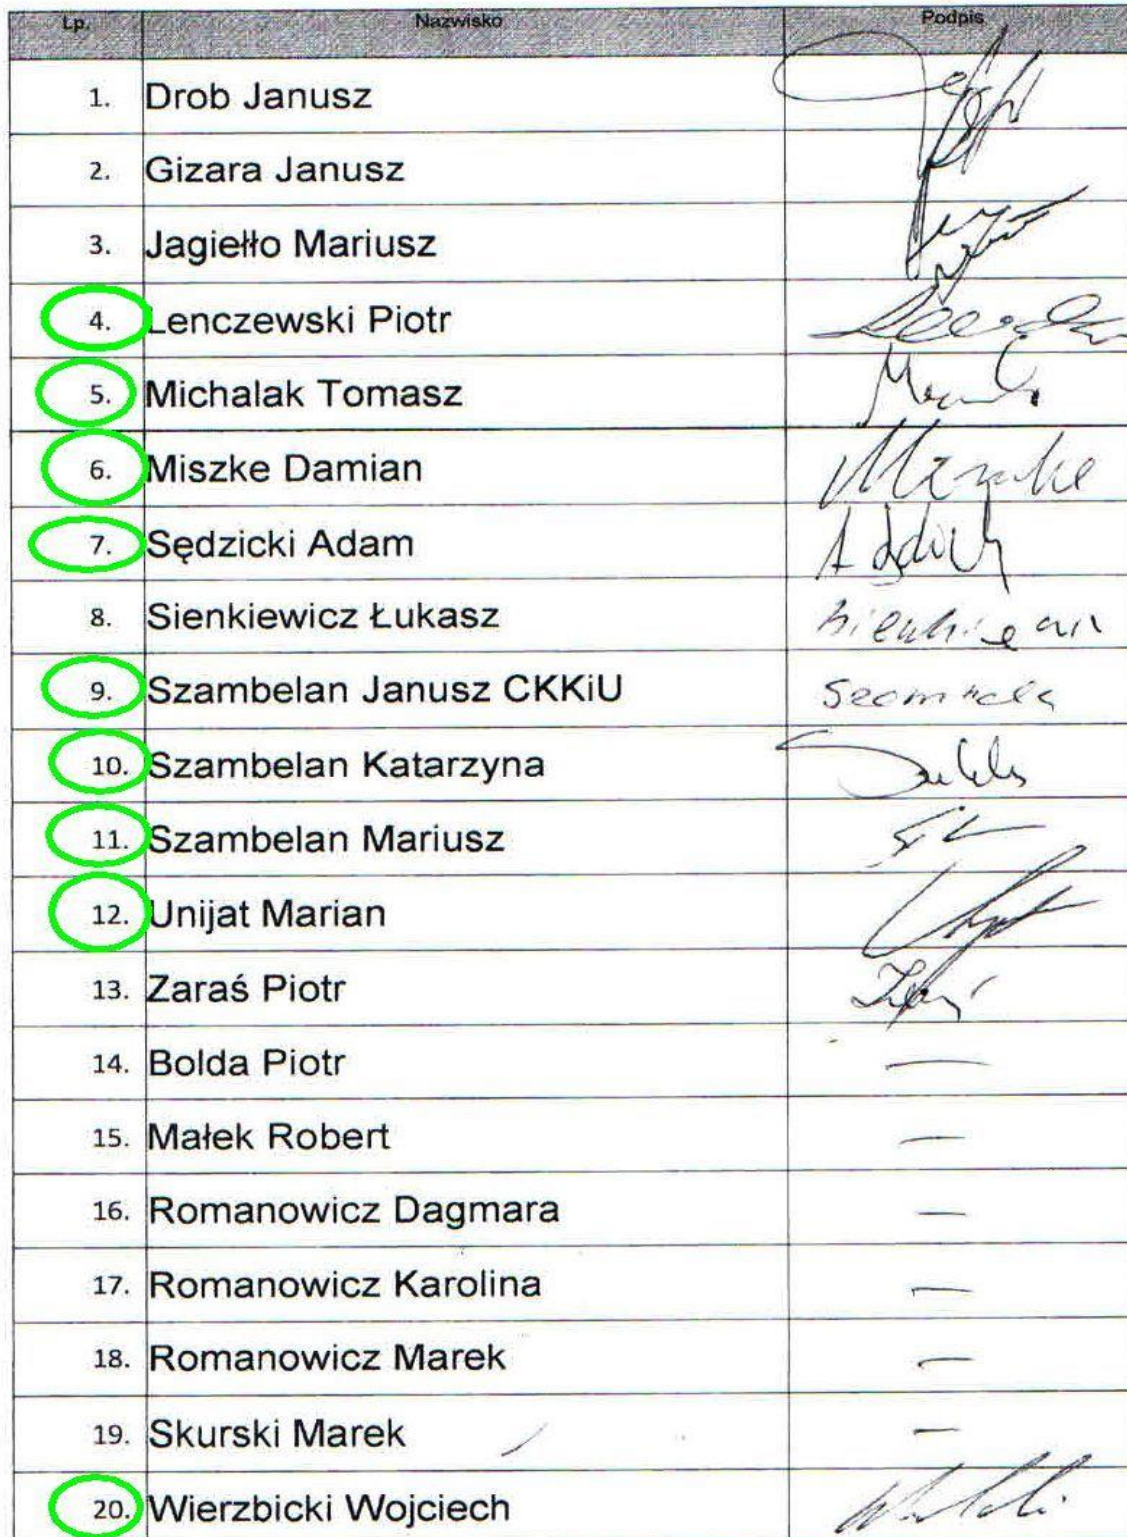 Lp. Nazwisko Podpis
1. Drob Janusz
2. Gizara Janusz
3. Jagiełło Mariusz
4. Lenczewski Piotr
5. Michalak Tomasz
6. Miszke Damian
7. Sędzicki Adam
8. Sienkiewicz Łukasz
9. Szambelan Janusz CKKiU
10. Szambelan Katarzyna
11. Szambelan Mariusz
12. Unijat Marian
13. Zaraś Piotr
14. Bolda Piotr —
15. Małek Robert —
16. Romanowicz Dagmara —
17. Romanowicz Karolina —
18. Romanowicz Marek —
19. Skurski Marek —
20. Wierzbicki Wojciech